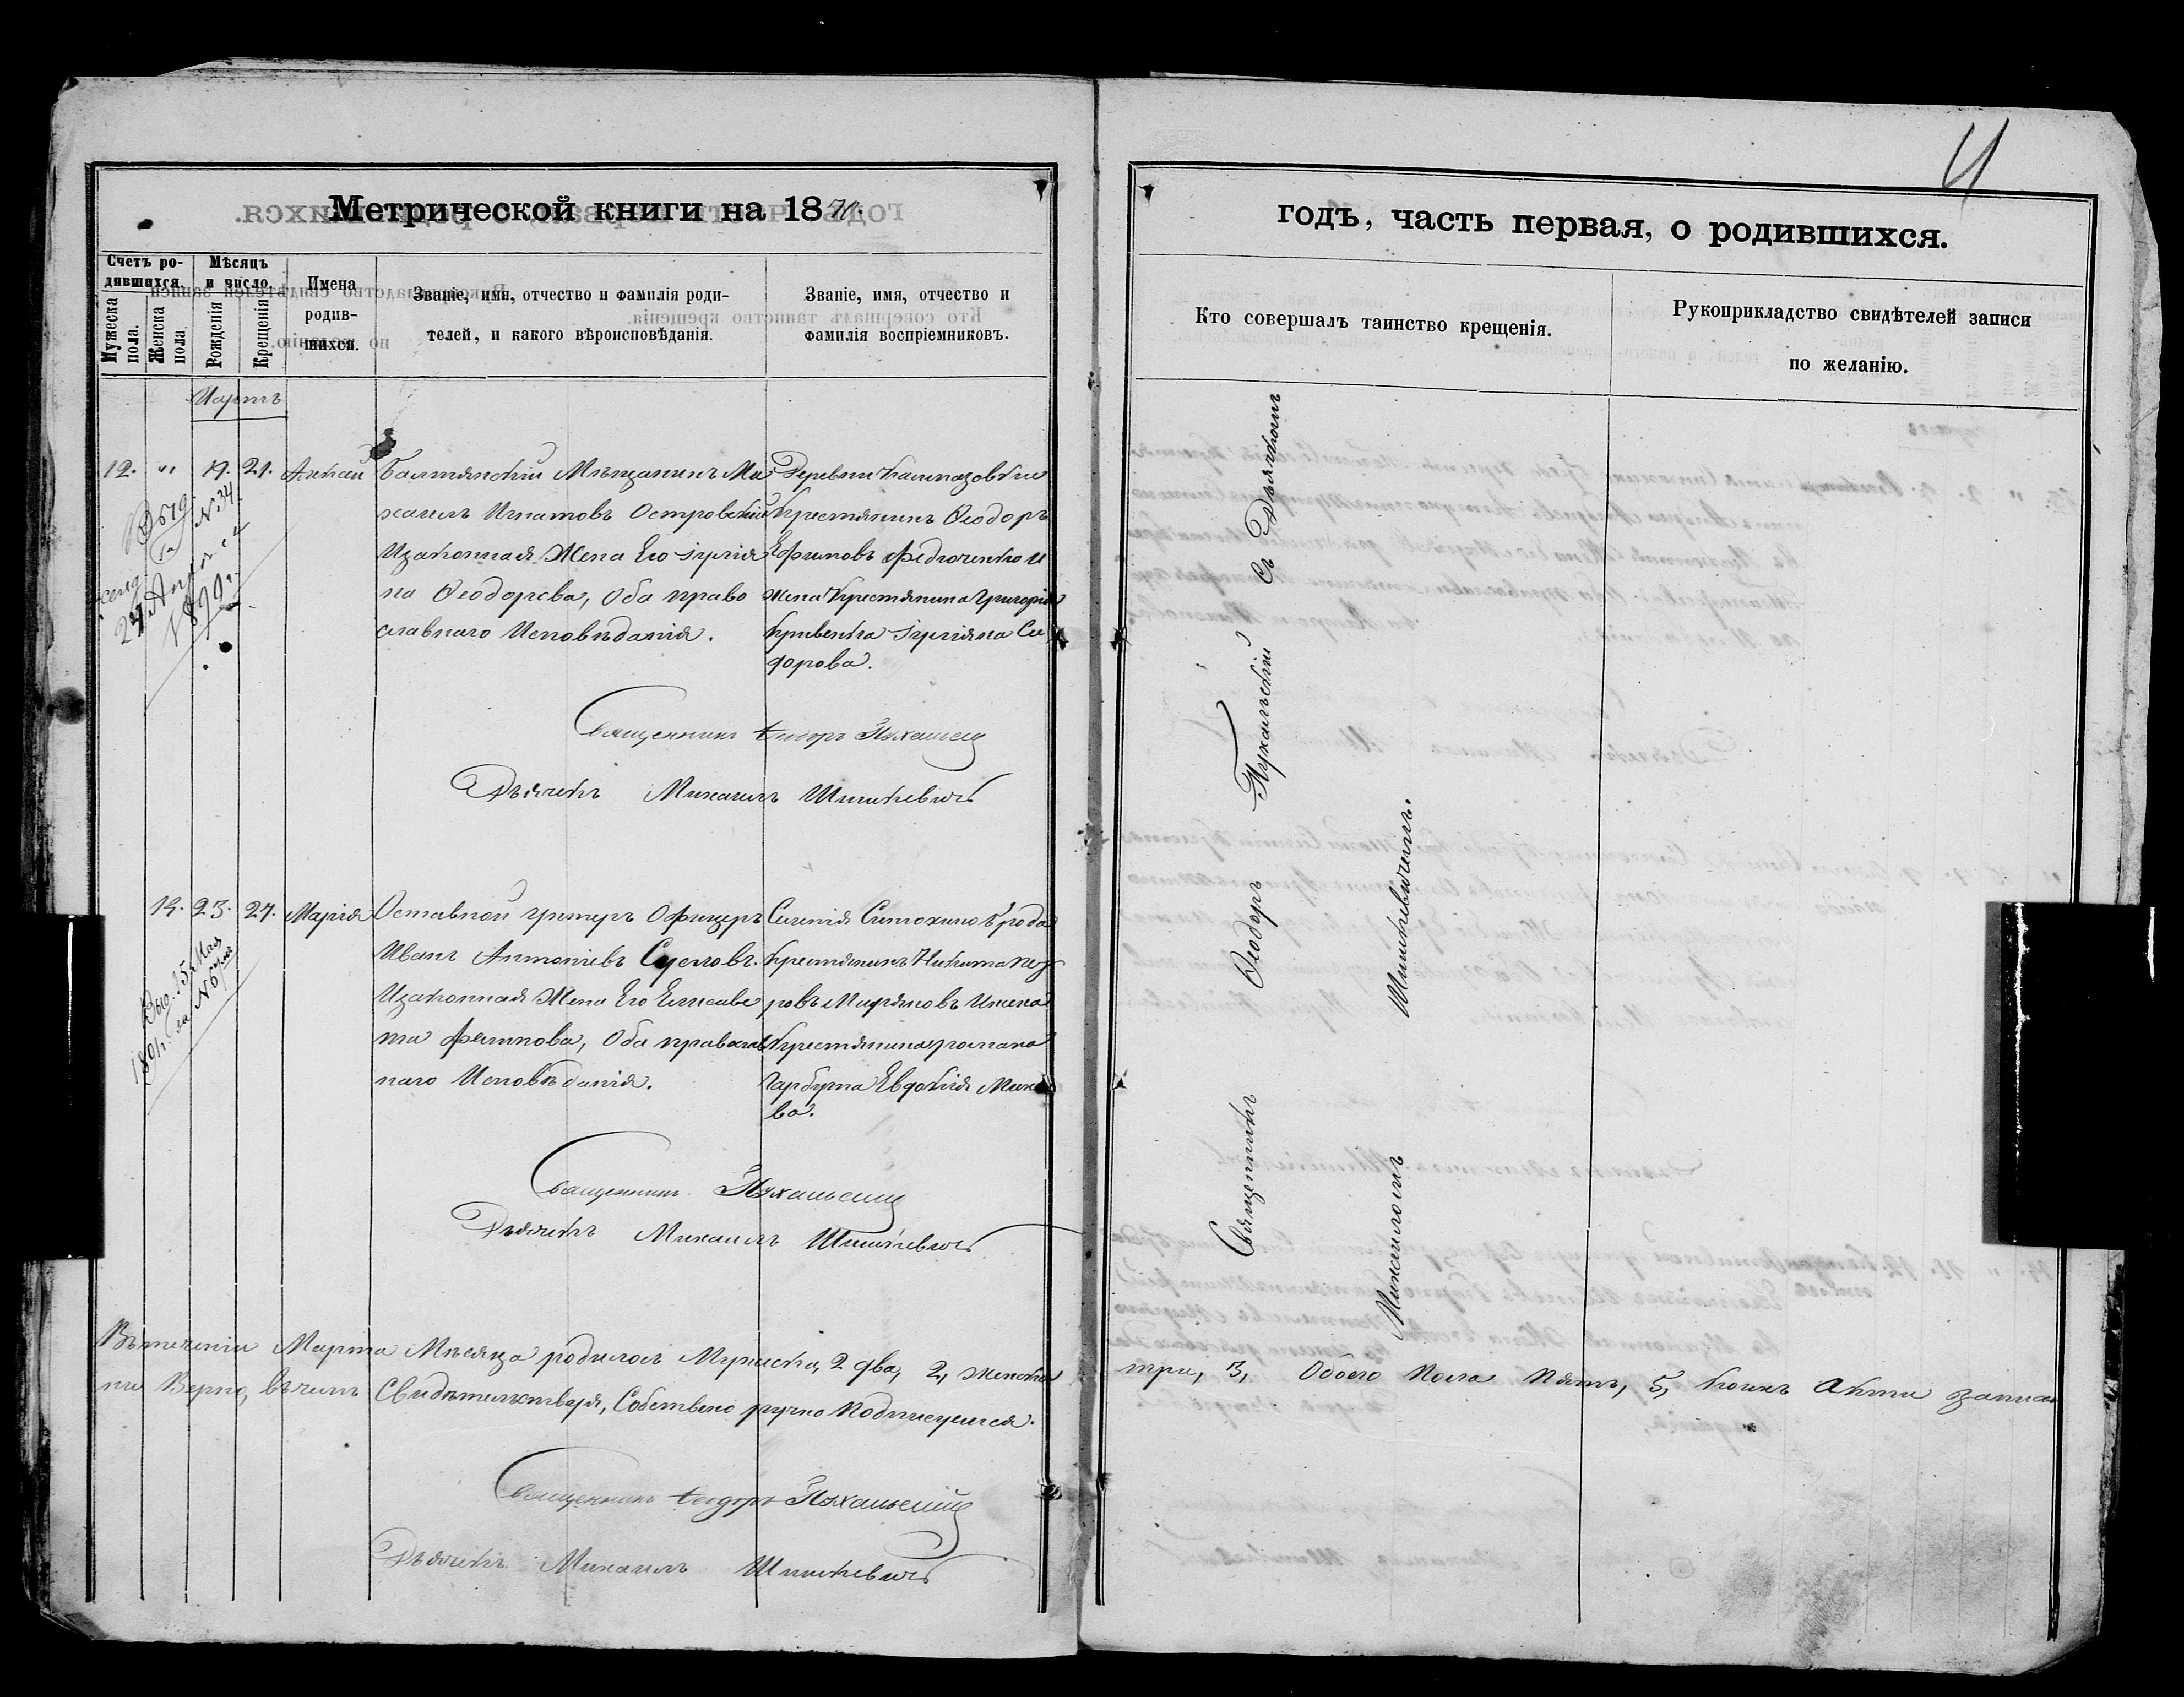 4
Метрической книги на 1870.
годъ, часть первая, о родившихся.
Счетъ ро-
дившихся.
Мужеска пола.
Женска пола.
Мѣсяцъ
и число.
Рожденія
Крещенія
Имена
родив-
шихся.
Званіе, имя, отчество и фамилія роди-
телей, и какого вѣроисповѣданія.
Званіе, имя, отчество и
фамилія воспріемниковъ.
Кто совершалъ таинство крещенія.
Рукоприкладство свидѣтелей записи
по желанію.
Мартъ
12. " 19. 21.
Балтянскій Мѣщанинъ Ми
хаилъ Игнатовъ Островскій
Изаконная Жена Его Іулія
на Ѳеодорова, Оба право
славнаго Исповѣданія.
Деревни
Крестянинъ Ѳеодоръ
Ефимовъ Федюченко и
жена Крестянина Григорія
Кривенка Іуліяна Си
дорова.
Выд.
за № 34
1899 г.
Священникъ Ѳеодоръ
Дьячекъ Михаилъ Шишкевичъ
23. 27. Марія
Оставной унтеръ Офицеръ
Иванъ Антоніевъ Сусловъ.
Изаконная Жена Его Елисаве
та Филипова, Оба православ
наго Исповѣданія.
Селенія
Крестянинъ Никита
Ижена
Крестянина романа
Гарбуза Евдокія
ва.
Выд. 15 Мая
за № 67
Священникъ
Дьячекъ Михаилъ Шишкевичъ
Священникъ Ѳеодоръ Пухальскій съ Дьячкомъ
Михаиломъ Шишкевичемъ.
Втеченіи Марта Мѣсяца родилось Мужеска, 2 два, 2, женска три, 3, Обоего Пола Пять, 5, Акти записа
ни Верно, вчемъ Свидѣтельствуя, Собствено ручно Подписуемся.
Священникъ Ѳеодоръ
Дьячекъ Михаилъ Шишкевичъ